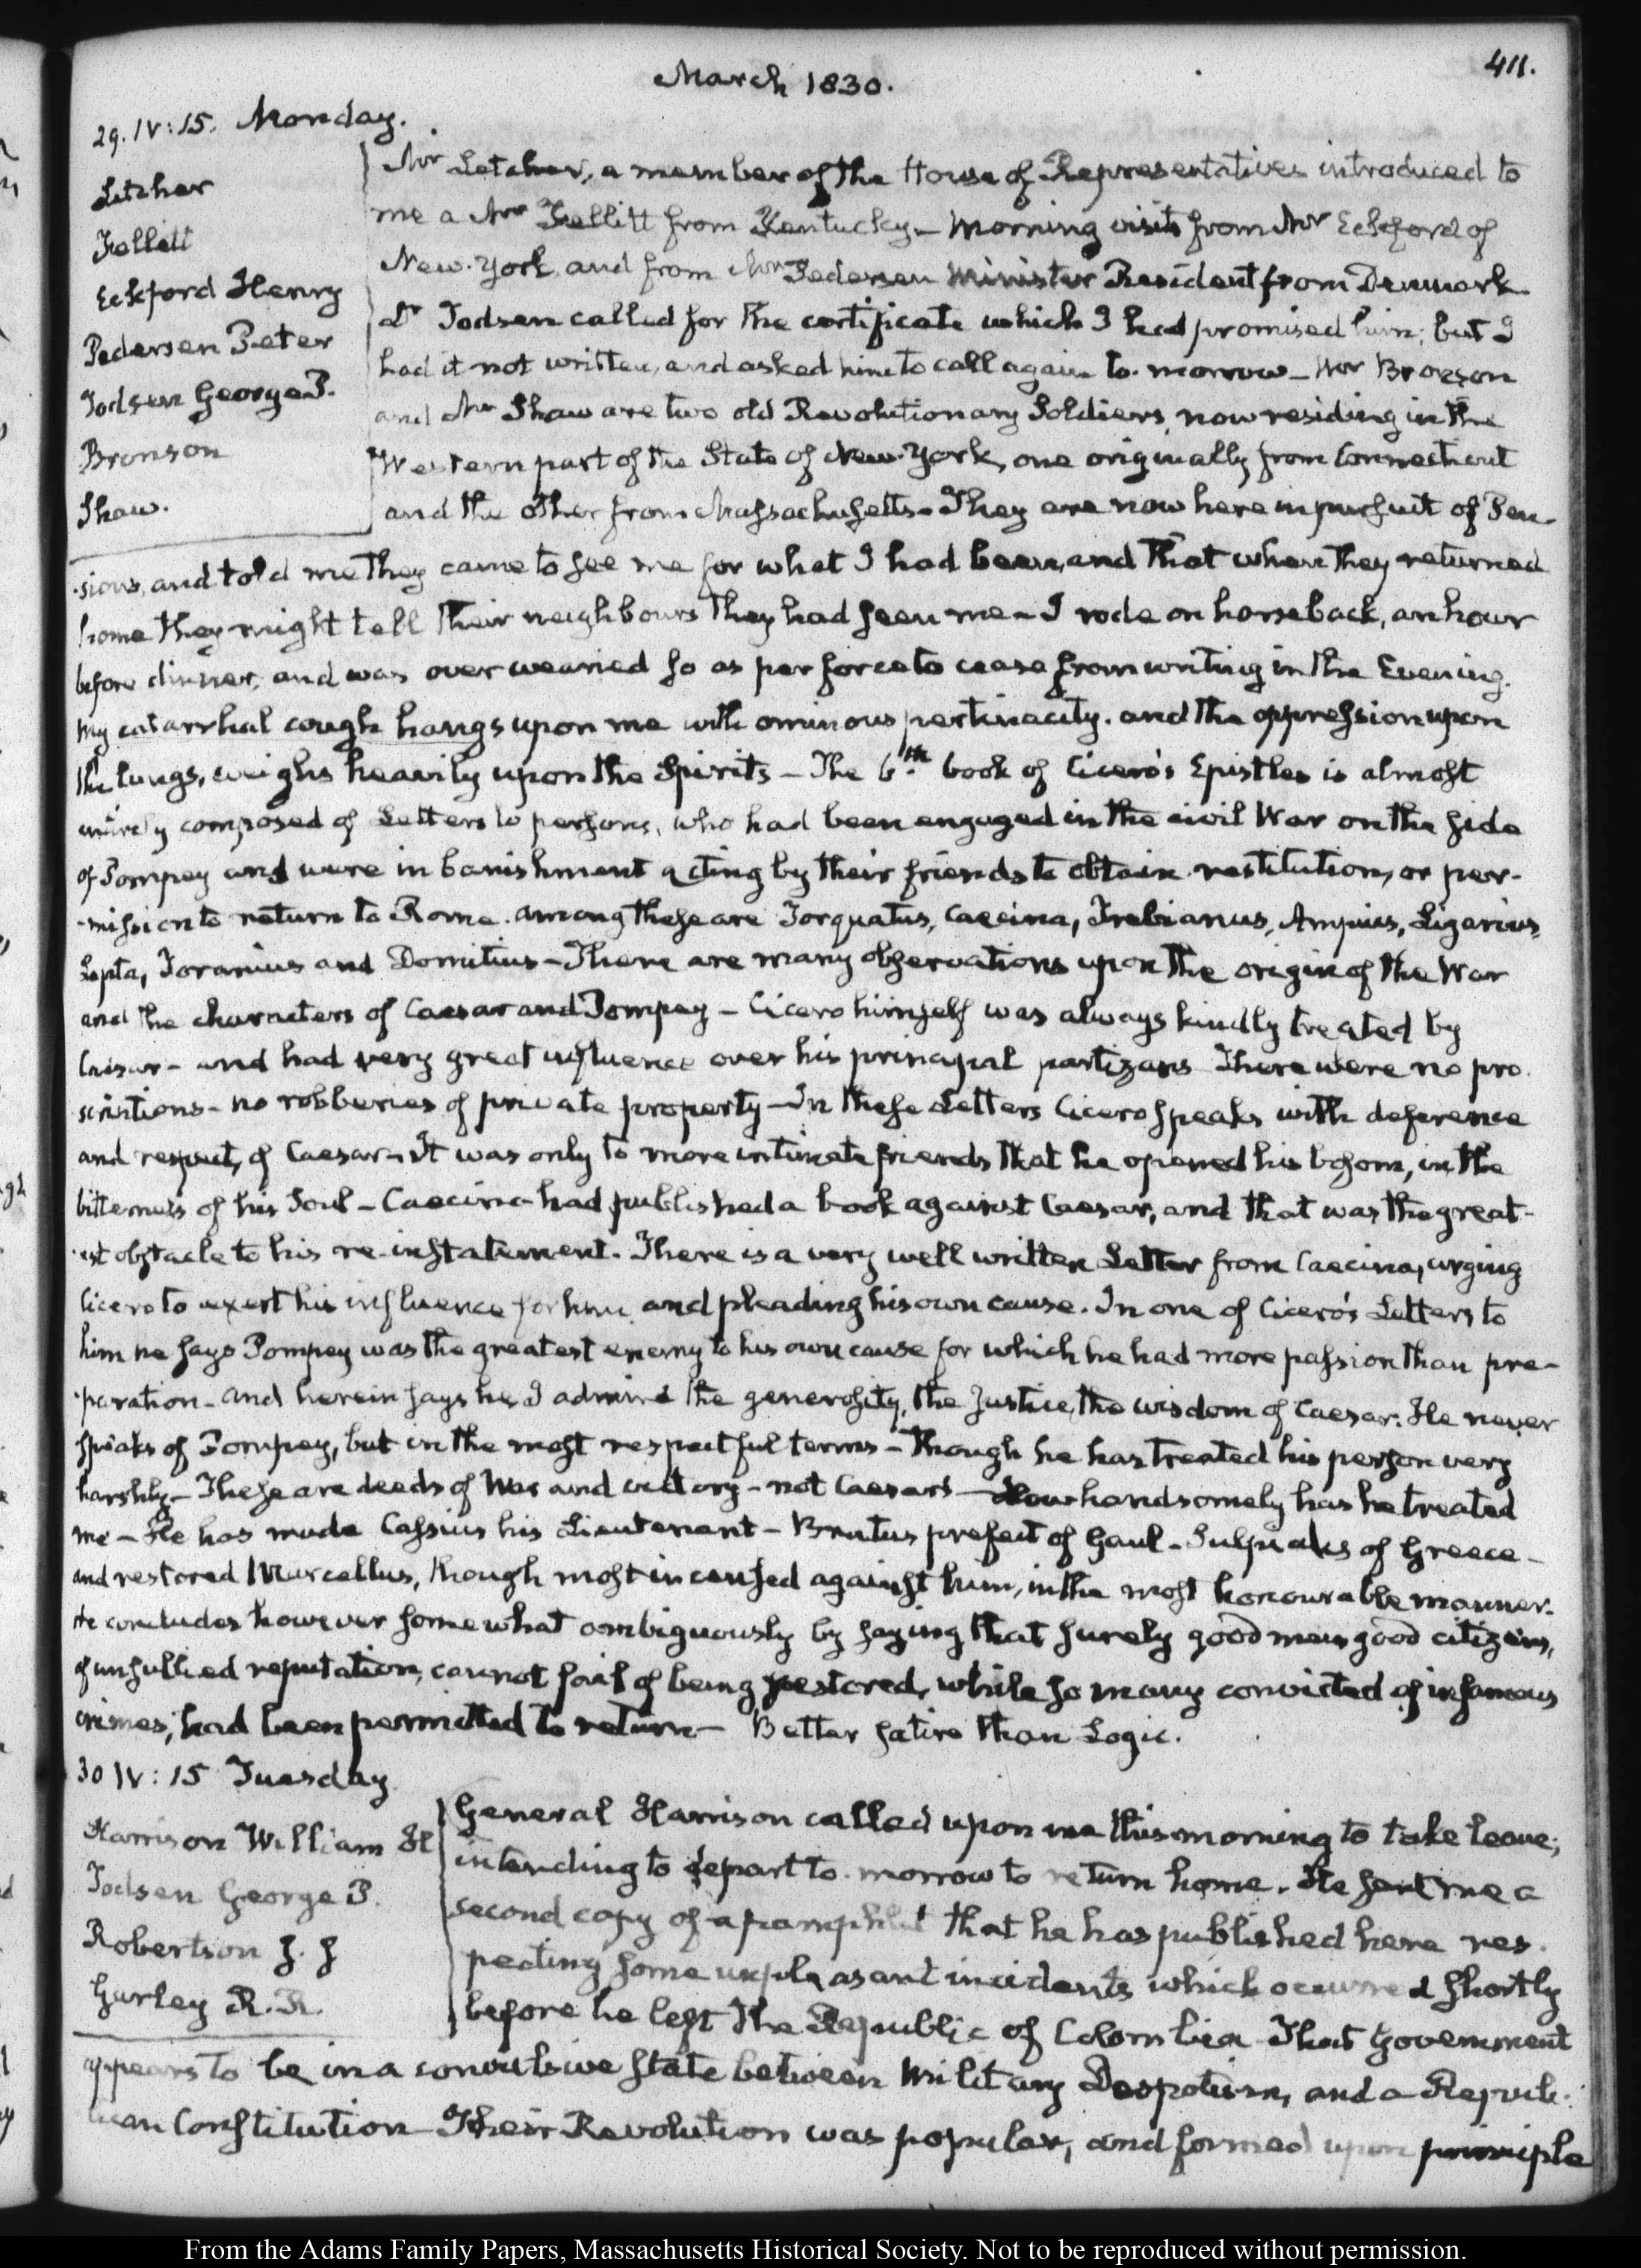 411.
March 1830.
29. IV:15. Monday.
Letcher
Fellitt
Eckford Henry
Pedersen Peter
Todsen George P.
Bronson
Shaw.
Mr Letcher, a member of the House of Representatives introduced to
me a Mr Fellitt from Kentucky – Morning visits from Mr Eckford of
New-York, and from Mr Pedersen Minister Resident from Denmark.
Dr Todsen called for the certificate which I had promised him; but I
had it not written, and asked him to call again to-morrow – Mr Bronson
and Mr Shaw are two old Revolutionary Soldiers, now residing in the
Western part of the State of New-York, one originally from Connecticut
and the other from Massachusetts – They are now here in pursuit of Pen-
-sions, and told me they came to see me for what I had been, and that when they returned
home they might tell their neighbours they had seen me – I rode on horseback, an hour
before dinner, and was over wearied so as perforce to cease from writing in the Evening.
My catarrhal cough hangs upon me with ominous pertinacity. and the oppression upon
the lungs, weighs heavily upon the Spirits – The 6th. book of Cicero's Epistles is almost
entirely composed of Letters to persons, who had been engaged in the civil War on the side
of Pompey and were in banishment acting by their friends to obtain restitution, or per-
-mission to return to Rome. among these are Torquatus, Caecina, Trebianus, Ampius, Ligarius,
Lepta, Toranius and Domitius – There are many observations upon the origin of the War
and the characters of Caesar and Pompey – Cicero himself was always kindly treated by
Caesar – and had very great influence over his principal partizans There were no pro-
scriptions – no robberies of private property – In these Letters Cicero speaks with deference
and respect, of Caesar – It was only to more intimate friends that he opened his bosom, in the
bitterness of his Soul – Caecina had published a book against Caesar, and that was the great-
-est obstacle to his re-instatement. There is a very well written Letter from Caecina, urging
Cicero to exert his influence for him, and pleading his own cause. In one of Cicero's Letters to
him he says Pompey was the greatest enemy to his own cause for which he had more passion than pre-
-paration – and herein says he, I admire the generosity, the justice, the wisdom of Caesar. He never
speaks of Pompey, but in the most respectful terms – Though he has treated his person very
harshly – These are deeds of War and victory – not Caesar's – How handsomely has he treated
me – He has made Cassius his Lieutenant – Brutus prefect of Gaul – Sulpicius of Greece –
and restored Marcellus, though most incensed against him, in the most honourable manner.
He concludes however somewhat ambiguously by saying that surely good men good citizens,
of unsullied reputation, cannot fail of being restored, while so many convicted of infamous
crimes, had been permitted to return – Better satire than Logic.
30 IV:15 Tuesday
Harrison William H
Todsen George P.
Robertson J. J
Gurley R. R.
General Harrison called upon me this morning to take leave;
intending to depart to-morrow to return home. He sent me a
second copy of a pamphlet that he has published here res-
pecting some unpleasant incidents which occurred shortly
before he left the Republic of Colombia That Government
appears to be in a convulsive state between Military Despotism, and a Repub-
lican Constitution – Their Revolution was popular, and formed upon principle
From the Adams Family Papers, Massachusetts Historical Society. Not to be reproduced without permission.